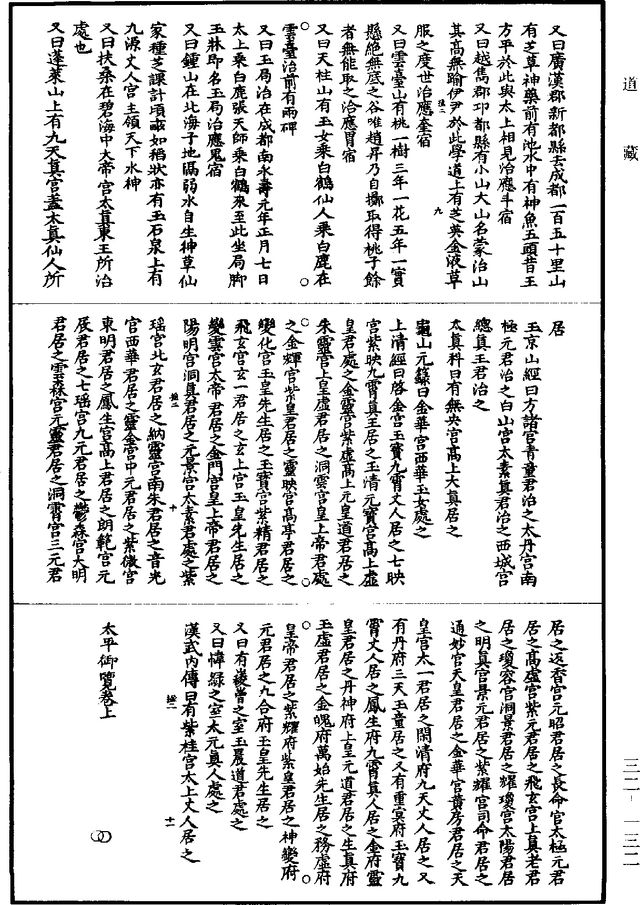 道藏
又曰廣漢郡新都縣去成都一百五十里山
有芝草神藥前有池水中有神魚五頭昔王
方平於此與太上相見治應斗宿
又曰越雋郡邛都縣有小山大山名蒙治山
其高無踰伊尹於此學道上有芝英金液草
服之度世治應奎宿
又曰雲臺山有桃一樹三年一花五年一實
懸絕無底之谷唯趙昇乃自擲取得桃子餘
者無能取之治應胃宿
又曰天柱山有玉女乘白鶴仙人乘白鹿在
雲臺治前有兩碑
又曰玉局治在成都南永壽元年正月七日
太上乘白鹿張天師乘白鶴來至此坐局脚
玉牀即名玉局治應鬼宿
又曰鐘山在北海子地隔弱水自生神草仙
家種芝課計頃畝如稻狀亦有玉石泉上有
九源丈人宮主領天下水神
又曰扶桑在碧海中大帝宮太真東王所治
處也
又曰蓬萊山上有九天真宮蓋太真仙人所
居
玉京山經曰方諸宮青童君治之太丹宮南
極元君治之白山宮太素真君治之西城宮
總真王君治之
太真科曰有無央宮高上大真居之
龜山元籙曰金華宮西華玉女處之
上清經曰啓金宮玉寶九霄丈人居之七映
宮紫映九霄真王居之玉清元寶宮高上虛
皇君處之金靈宮紫虛高上元皇道君居之
朱靈宮上皇虛君居之洞雲宮皇上帝君處
之金輝宮紫皇君居之靈映宮高亭君居之
變化宮玉皇先生居之玉寶宮紫精君居之
飛玄宮玄一君居之玄上宮玉皇先生居之
變雲宮太帝君居之金門宮皇上帝君居之
陽明宮洞真君居之元景宮太素君處之紫
瑤宮北玄君居之納靈宮南朱君居之音光
宮西華君居之靈金宮中元君居之紫微宮
東明君居之鳳生宮高上君居之朗範宮元
展君居之七瑤宮九元君居之鬱森宮大明
君居之雲森宮元靈君居之洞霄宮三元君
居之返香宮元昭君居之長命宮太極元君
居之高虛宮紫元君居之飛玄宮上真老君
居之瓊容宮洞景君居之耀瓊宮太陽君居
之明真宮景元君居之紫耀宮司命君居之
通妙宮天皇君居之金華宮黄房君居之天
皇宮太一君居之開清府九天丈人居之又
有丹府三天玉童居之又有重冥府玉寶九
霄丈人居之鳳生府九霄真人居之金府靈
皇君居之丹神府上皇元道君居之生真府
玉虛君居之金魄府萬始先生居之務虛府
皇帝君居之紫耀府紫皇君居之神變府
元君居之九合府玉皇先生居之
又曰有
之室玉晨道君處之
又曰
錄之室太元真人處之
漢武內傳曰有紫桂宮太上丈人居之
太平御覽卷上
三二
一三二